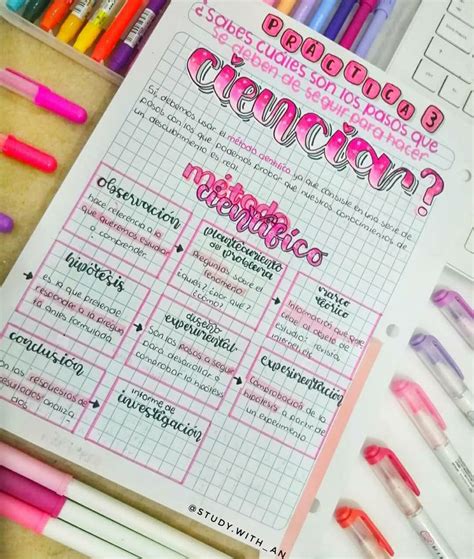 PRÁCTICA 3
¿Sabes cuáles son los pasos que
se deben de seguir para hacer
ciencia?
Sí, debemos usar el método científico ya que consiste en una serie de
pasos con los que podemos probar que nuestros conocimientos de
un descubrimiento es real.
método
científico
observación
hace referencia a lo
que queremos estudiar
o comprender.
planteamiento
del problema
Preguntas sobre el
fenómeno
¿qué?, ¿por qué?
¿cómo?
marco
teórico
Información que
al objeto de
estudio: revista,
internet, etc
hipótesis
es lo que pretende
responde a la pregunta
antes formulada
diseño
experimental
Son los pasos a seguir
para desarrollar o
comprobar la hipótesis
experimentación
Comprobación de la
hipótesis a partir de
un experimento.
conclusión
las respuestas de
resultados
informe de
investigación
@STUDY.WITH_AN